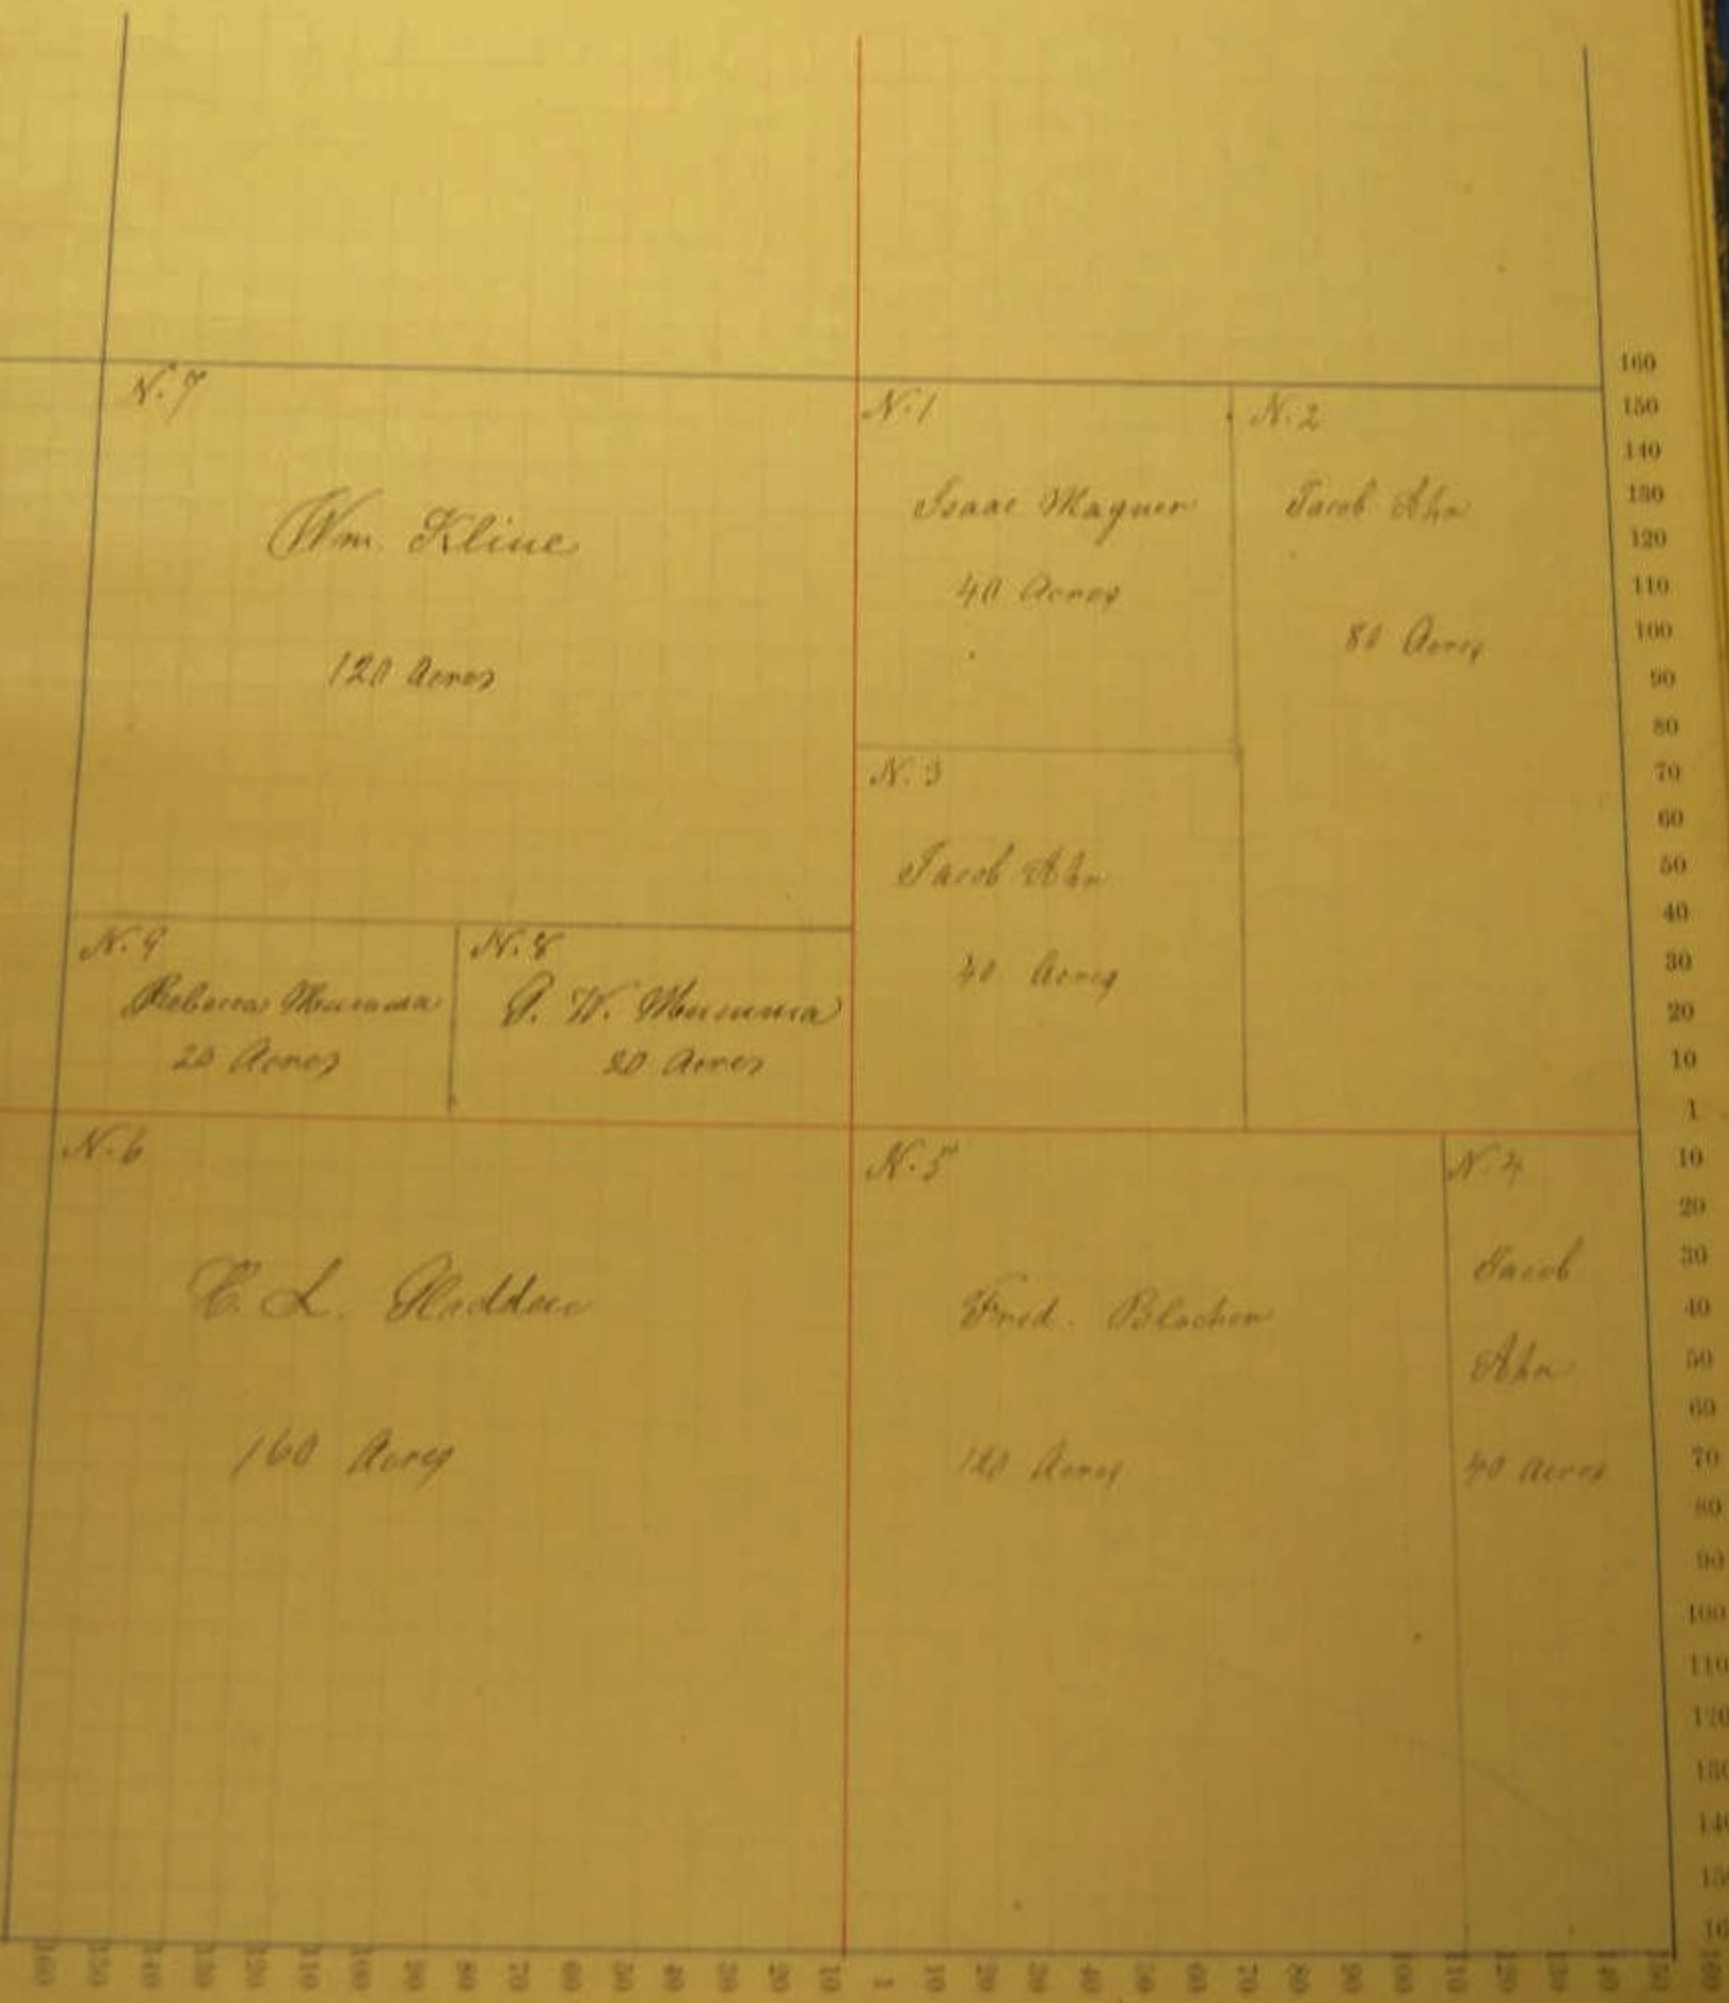 N. 7
Wm. Kline
120 Acres
N. 1
Isaac Wagner
40 Acres
N. 2
Jacob Ahn
80 Acres
N. 3
Jacob Ahn
40 Acres
N. 9
Rebecca Mumma
20 Acres
N. 8
G. W. Mumma
20 Acres
N. 6
C. L. Gladden
160 Acres
N. 5
Fred.
120 Acres
N. 4
Jacob
Ahn
40 Acres
160
150
140
130
120
110
100
90
80
70
60
50
40
30
20
10
1
10
20
30
40
50
60
70
80
90
100
110
120
130
160 150 140 130 120 110 100 90 80 70 60 50 40 30 20 10 1 10 20 30 40 50 60 70 80 90 100 110 120 130 140 150 160